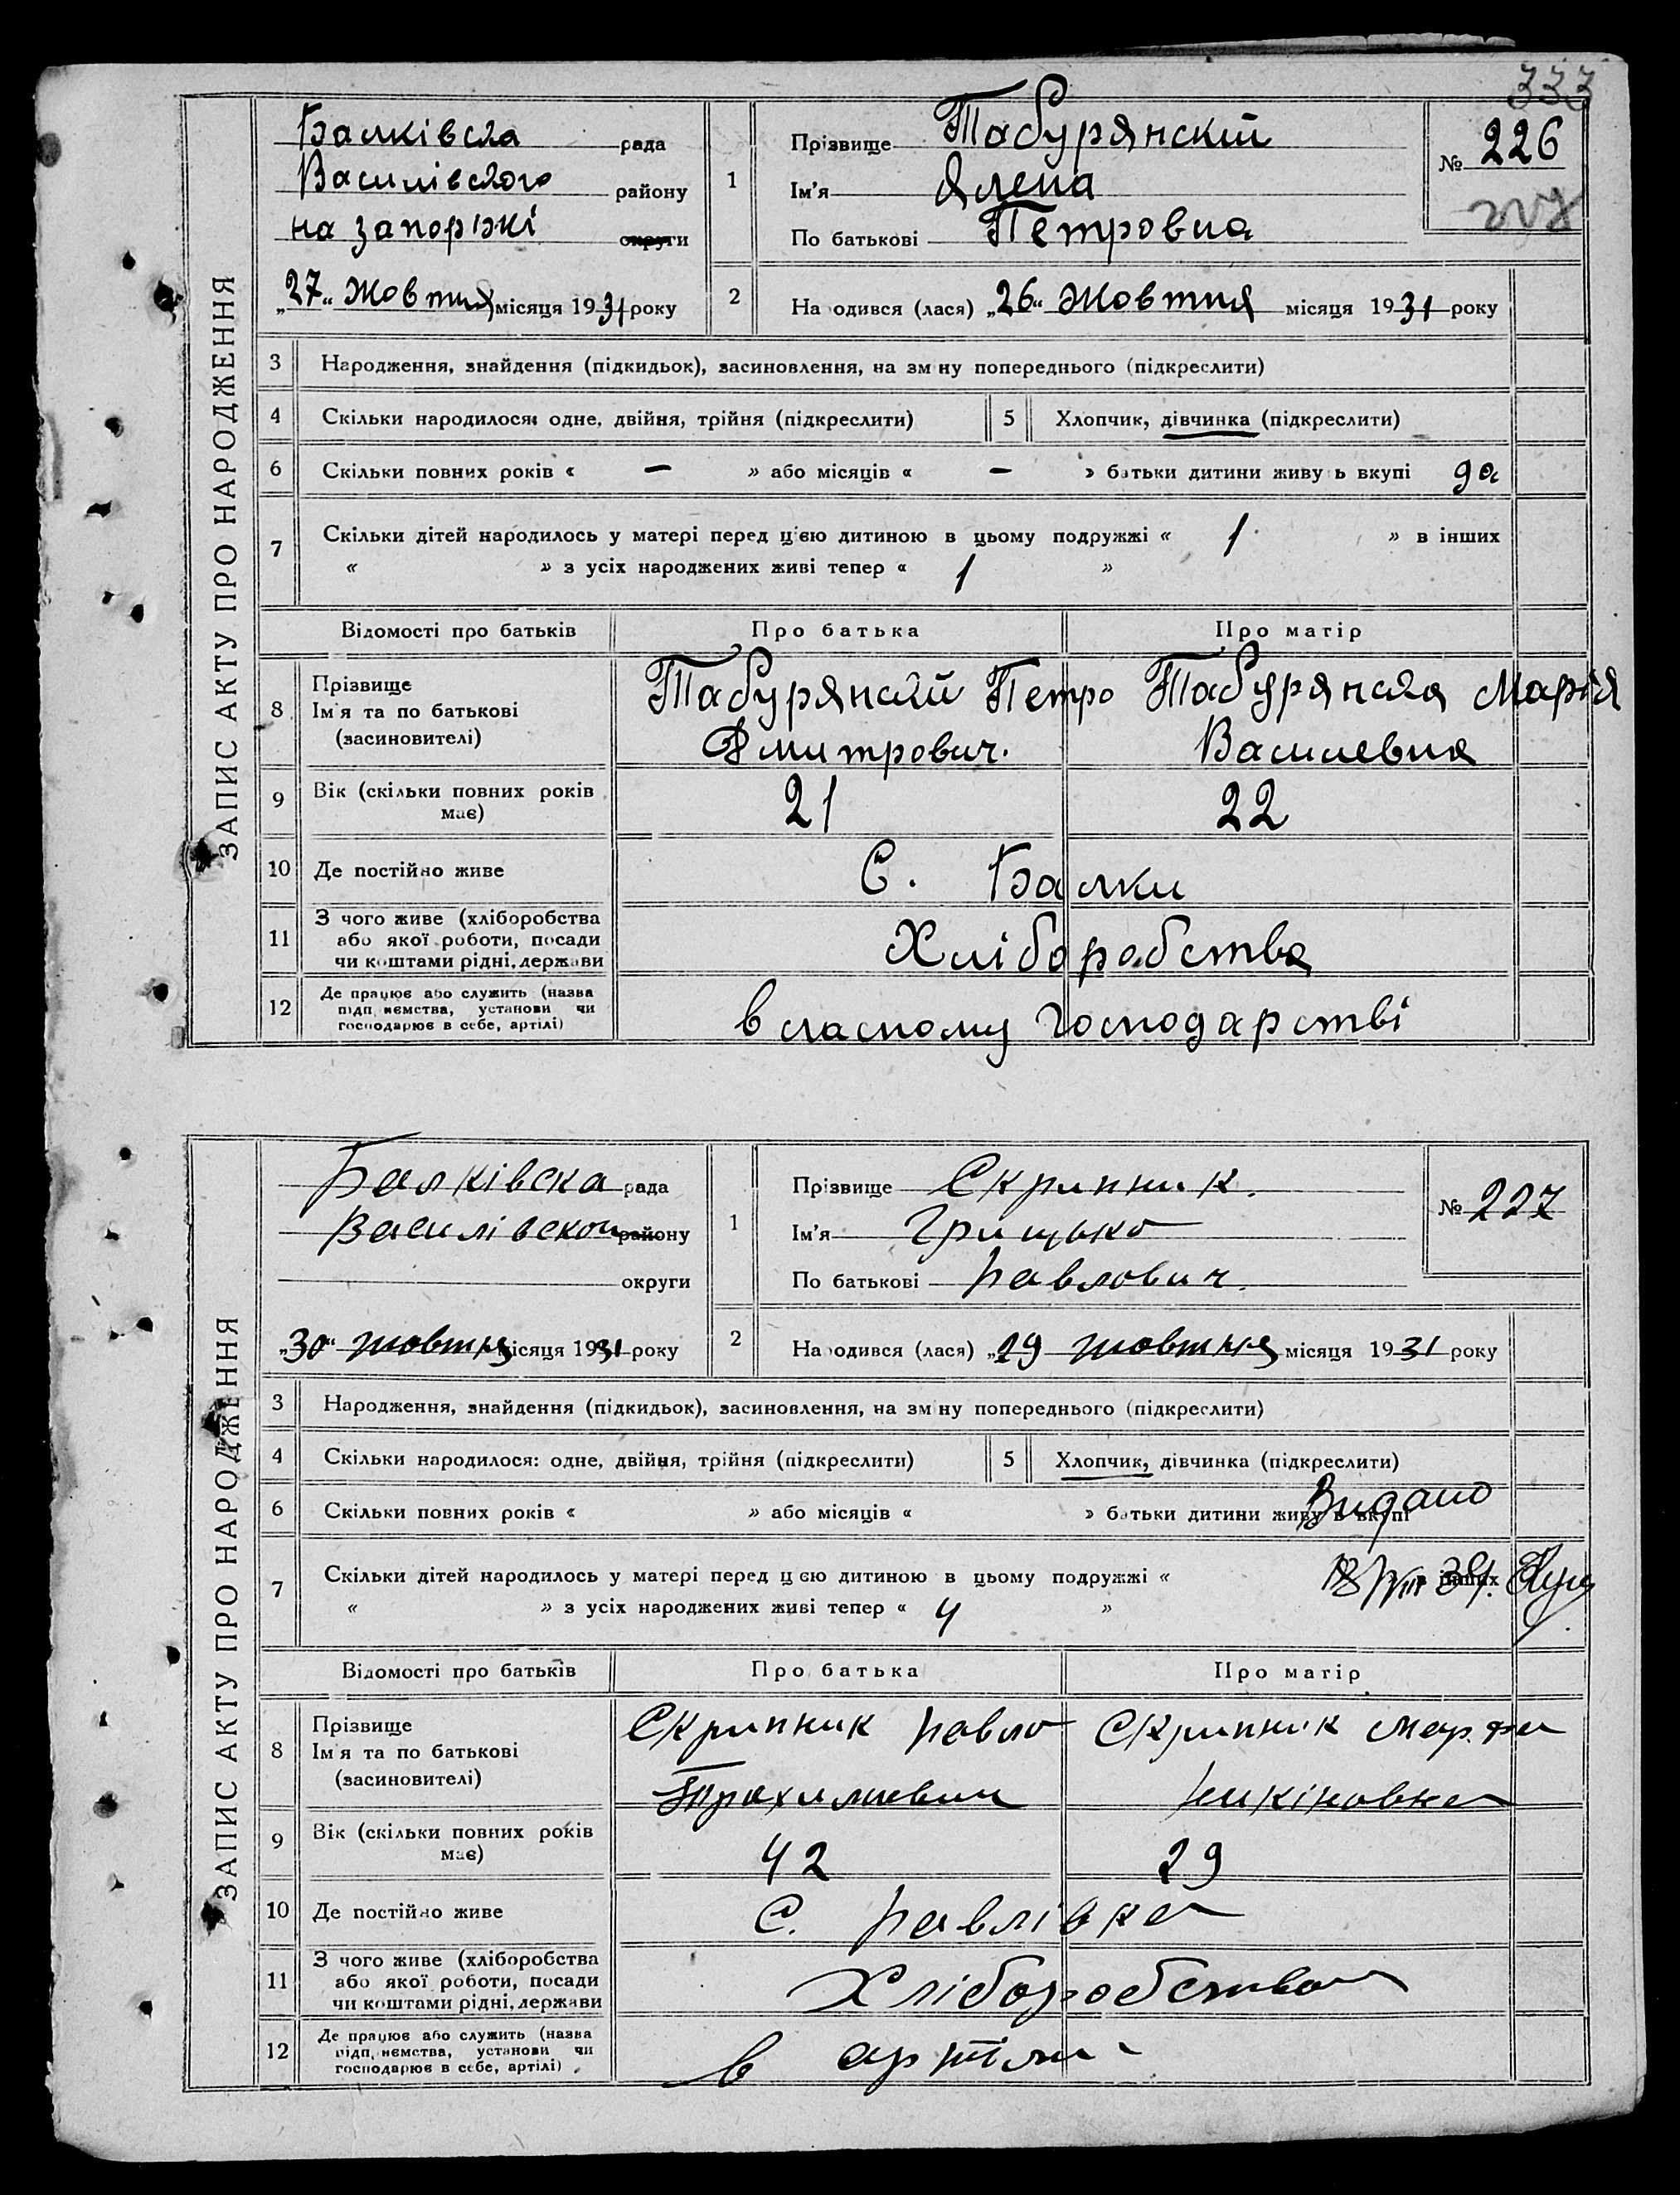 333
ЗАПИС АКТУ ПРО НАРОДЖЕННЯ
Балківска рада
Василівского району
на запоріжі округи
„27“ Жовтня місяця 1931 року
1
Прізвище Табурянский
Ім'я Ялена
По батькові Петровна
№ 226
2
Народився (лася) „26“ Жовтня місяця 1931 року
3 Народження, знайдення (підкидьок), засиновлення, на зміну попереднього (підкреслити)
4 Скільки народилося: одне, двійня, трійня (підкреслити) 5 Хлопчик, дівчинка (підкреслити)
6 Скільки повних років « — » або місяців « — » батьки дитини живуть вкупі да
7 Скільки дітей народилось у матері перед цією дитиною в цьому подружжі « 1 » в інших
« » з усіх народжених живі тепер « 1 »
Відомості про батьків Про батька Про матір
8 Прізвище Ім'я та по батькові (засиновителі)
Табурянский Петро Дмитрович.
Табурянска Марія Василевна
9 Вік (скільки повних років має) 21 22
10 Де постійно живе С. Балки
11 З чого живе (хліборобства або якої роботи, посади чи коштами рідні, держави
Хліборобства
12 Де працює або служить (назва підприємства, установи чи господарює в себе, артілі)
в ласному господарстві
ЗАПИС АКТУ ПРО НАРОДЖЕННЯ
Балківска рада
Василівског району
округи
„30“ жовтня місяця 1931 року
1
Прізвище Скрипник.
Ім'я Грицько
По батькові Павлович.
№ 227
2
Народився (лася) „29 жовтня місяця 1931 року
3 Народження, знайдення (підкидьок), засиновлення, на зміну попереднього (підкреслити)
4 Скільки народилося: одне, двійня, трійня (підкреслити) 5 Хлопчик, дівчинка (підкреслити)
6 Скільки повних років « » або місяців « » батьки дитини живуть вкупі
Видано
7 Скільки дітей народилось у матері перед цією дитиною в цьому подружжі « » в інших
« » з усіх народжених живі тепер « 4 »
Відомості про батьків Про батька Про матір
8 Прізвище Ім'я та по батькові (засиновителі)
Скрипник Павло
Скрипник Марфа
9 Вік (скільки повних років має) 42 29
10 Де постійно живе С. Павлівка
11 З чого живе (хліборобства або якої роботи, посади чи коштами рідні, держави
Хліборобства
12 Де працює або служить (назва підприємства, установи чи господарює в себе, артілі)
в артілі